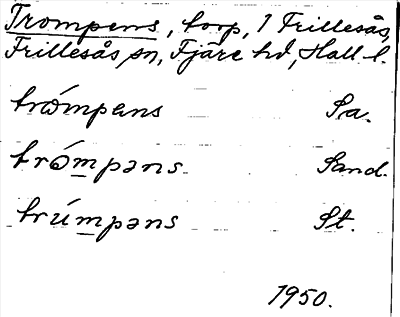 Trompens, torp, 1 Frillesås,
Frillesås sn, Fjäre hd, Hall. l.
trǿmpens Sa.
trómpəns Sand.
trúmpəns St.
1950.